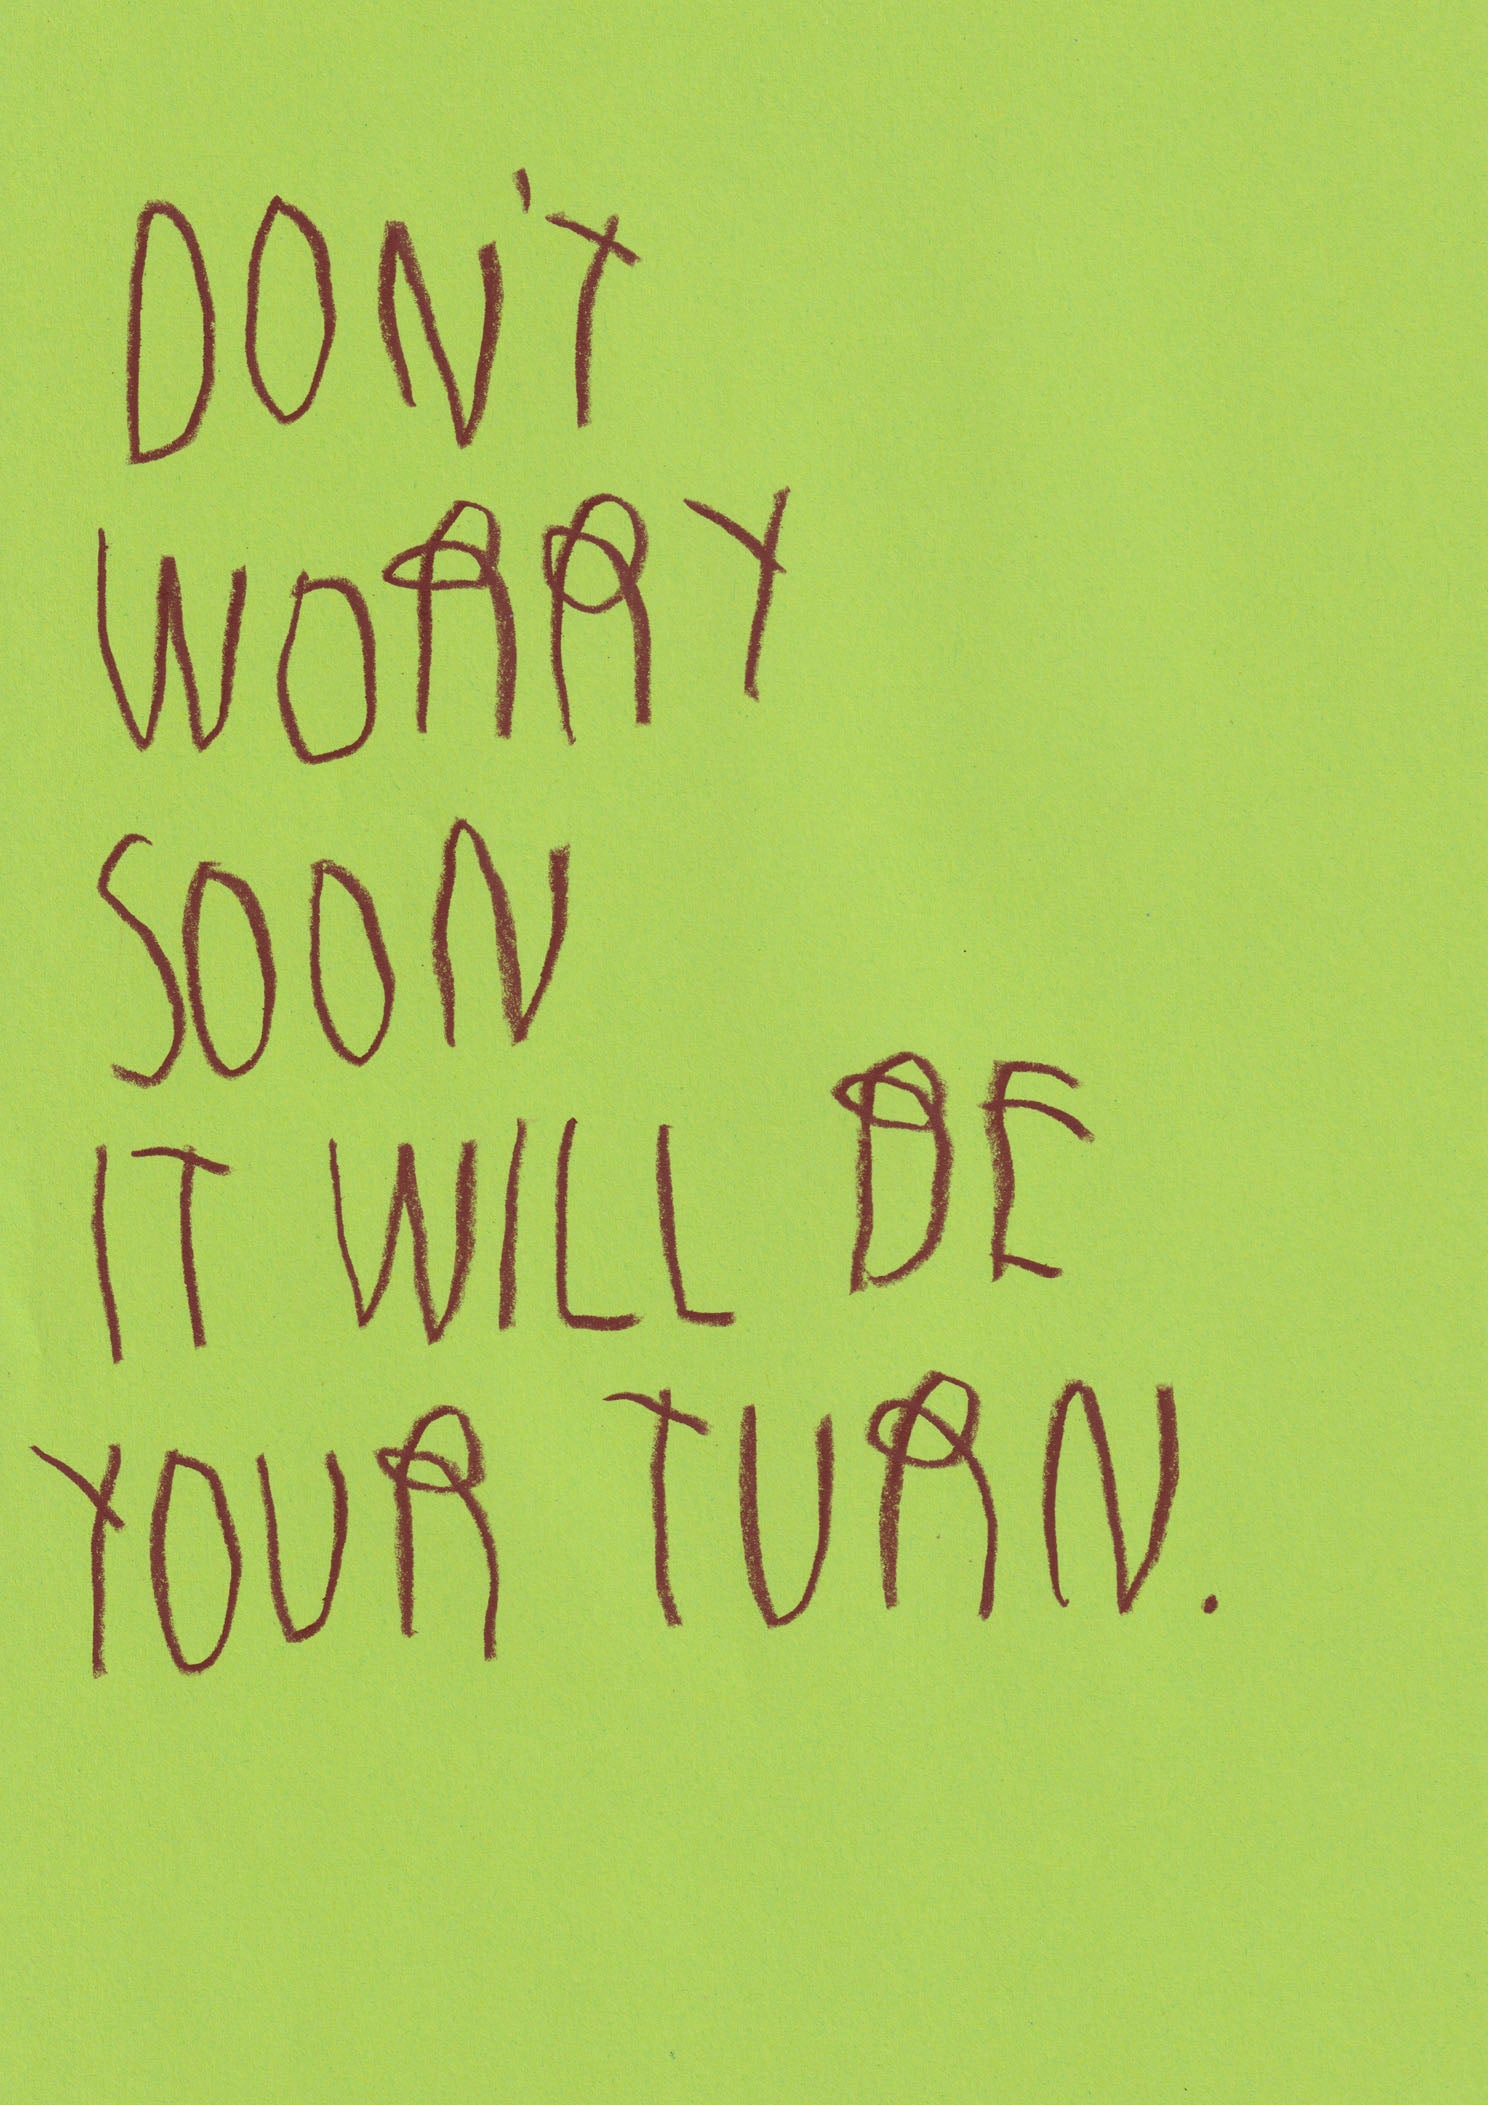 DON'T
WORRY
SOON
IT WILL BE
YOUR TURN.